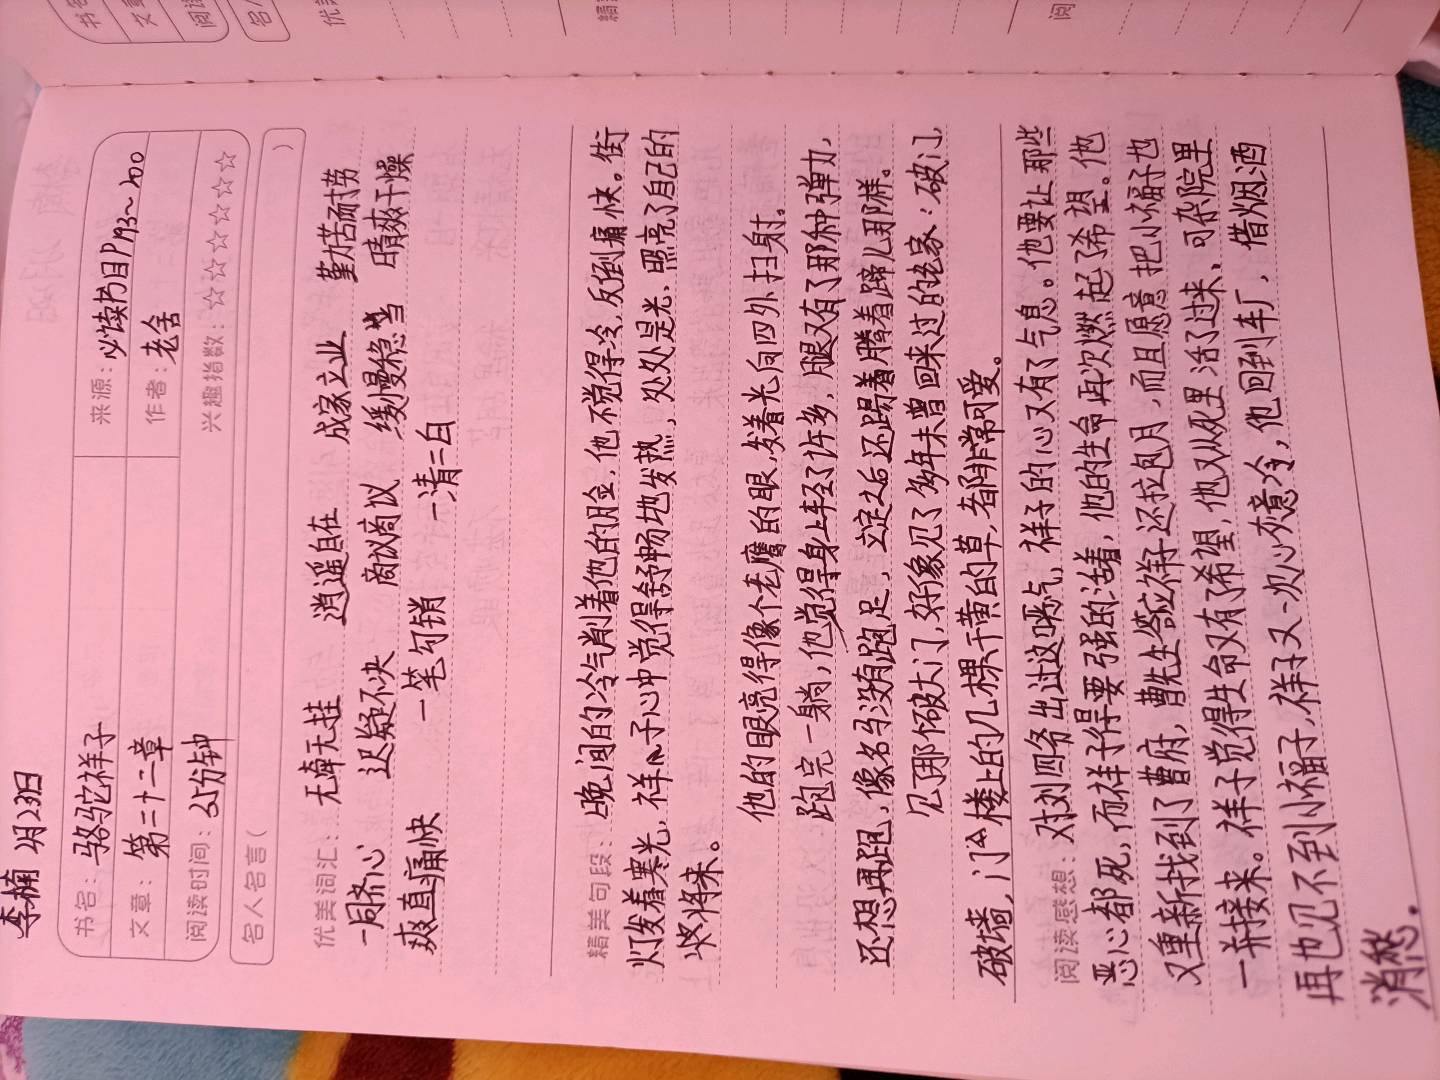 李楠 4月23日
书名：骆驼祥子
来源：必读书目P193~200
文章：第二十二章
作者：老舍
阅读时间：25分钟
兴趣指数：☆☆☆☆☆☆
名人名言（ ）
优美词汇：无牵无挂 逍遥自在 成家立业 董荷茹劳
一同齐心 迟疑不决 商议商议 缓慢稳当 晴爽干燥
爽直痛快 一笔勾销 一清二白
精美句段：晚间的冷气削着他的脸，他不觉得冷，反倒痛快。街
灯发着寒光，祥子心中觉得舒畅地发热，处处是光，照亮了自己的
将来。
他的眼亮得像个老鹰的眼，发着光向四外扫射。
跑完一躺，他觉得身上轻了许多，腿又有了那种弹力，
还想再跑，像名马没有跑足，立定之后还踢着腾着蹄儿那样。
见了那个破大门，好像见了多年未曾回来过的老家：破门，
破墙，门楼上的几棵干黄的草，都非常可爱。
阅读感想：对刘四爷出过这恶气，祥子的心又有了气息。他要让那些
恶心都死，而祥子得要强的活着，他的生命再次燃起了希望。他
又重新找到了曹府，曹先生答应祥子还拉包月，而且愿意把小福子也
一并接来。祥子觉得生命又有了希望，他又从死里活了过来、可杂院里
再也见不到小福子，祥子又一次心灰意冷，他回到车厂，借烟酒
消愁。